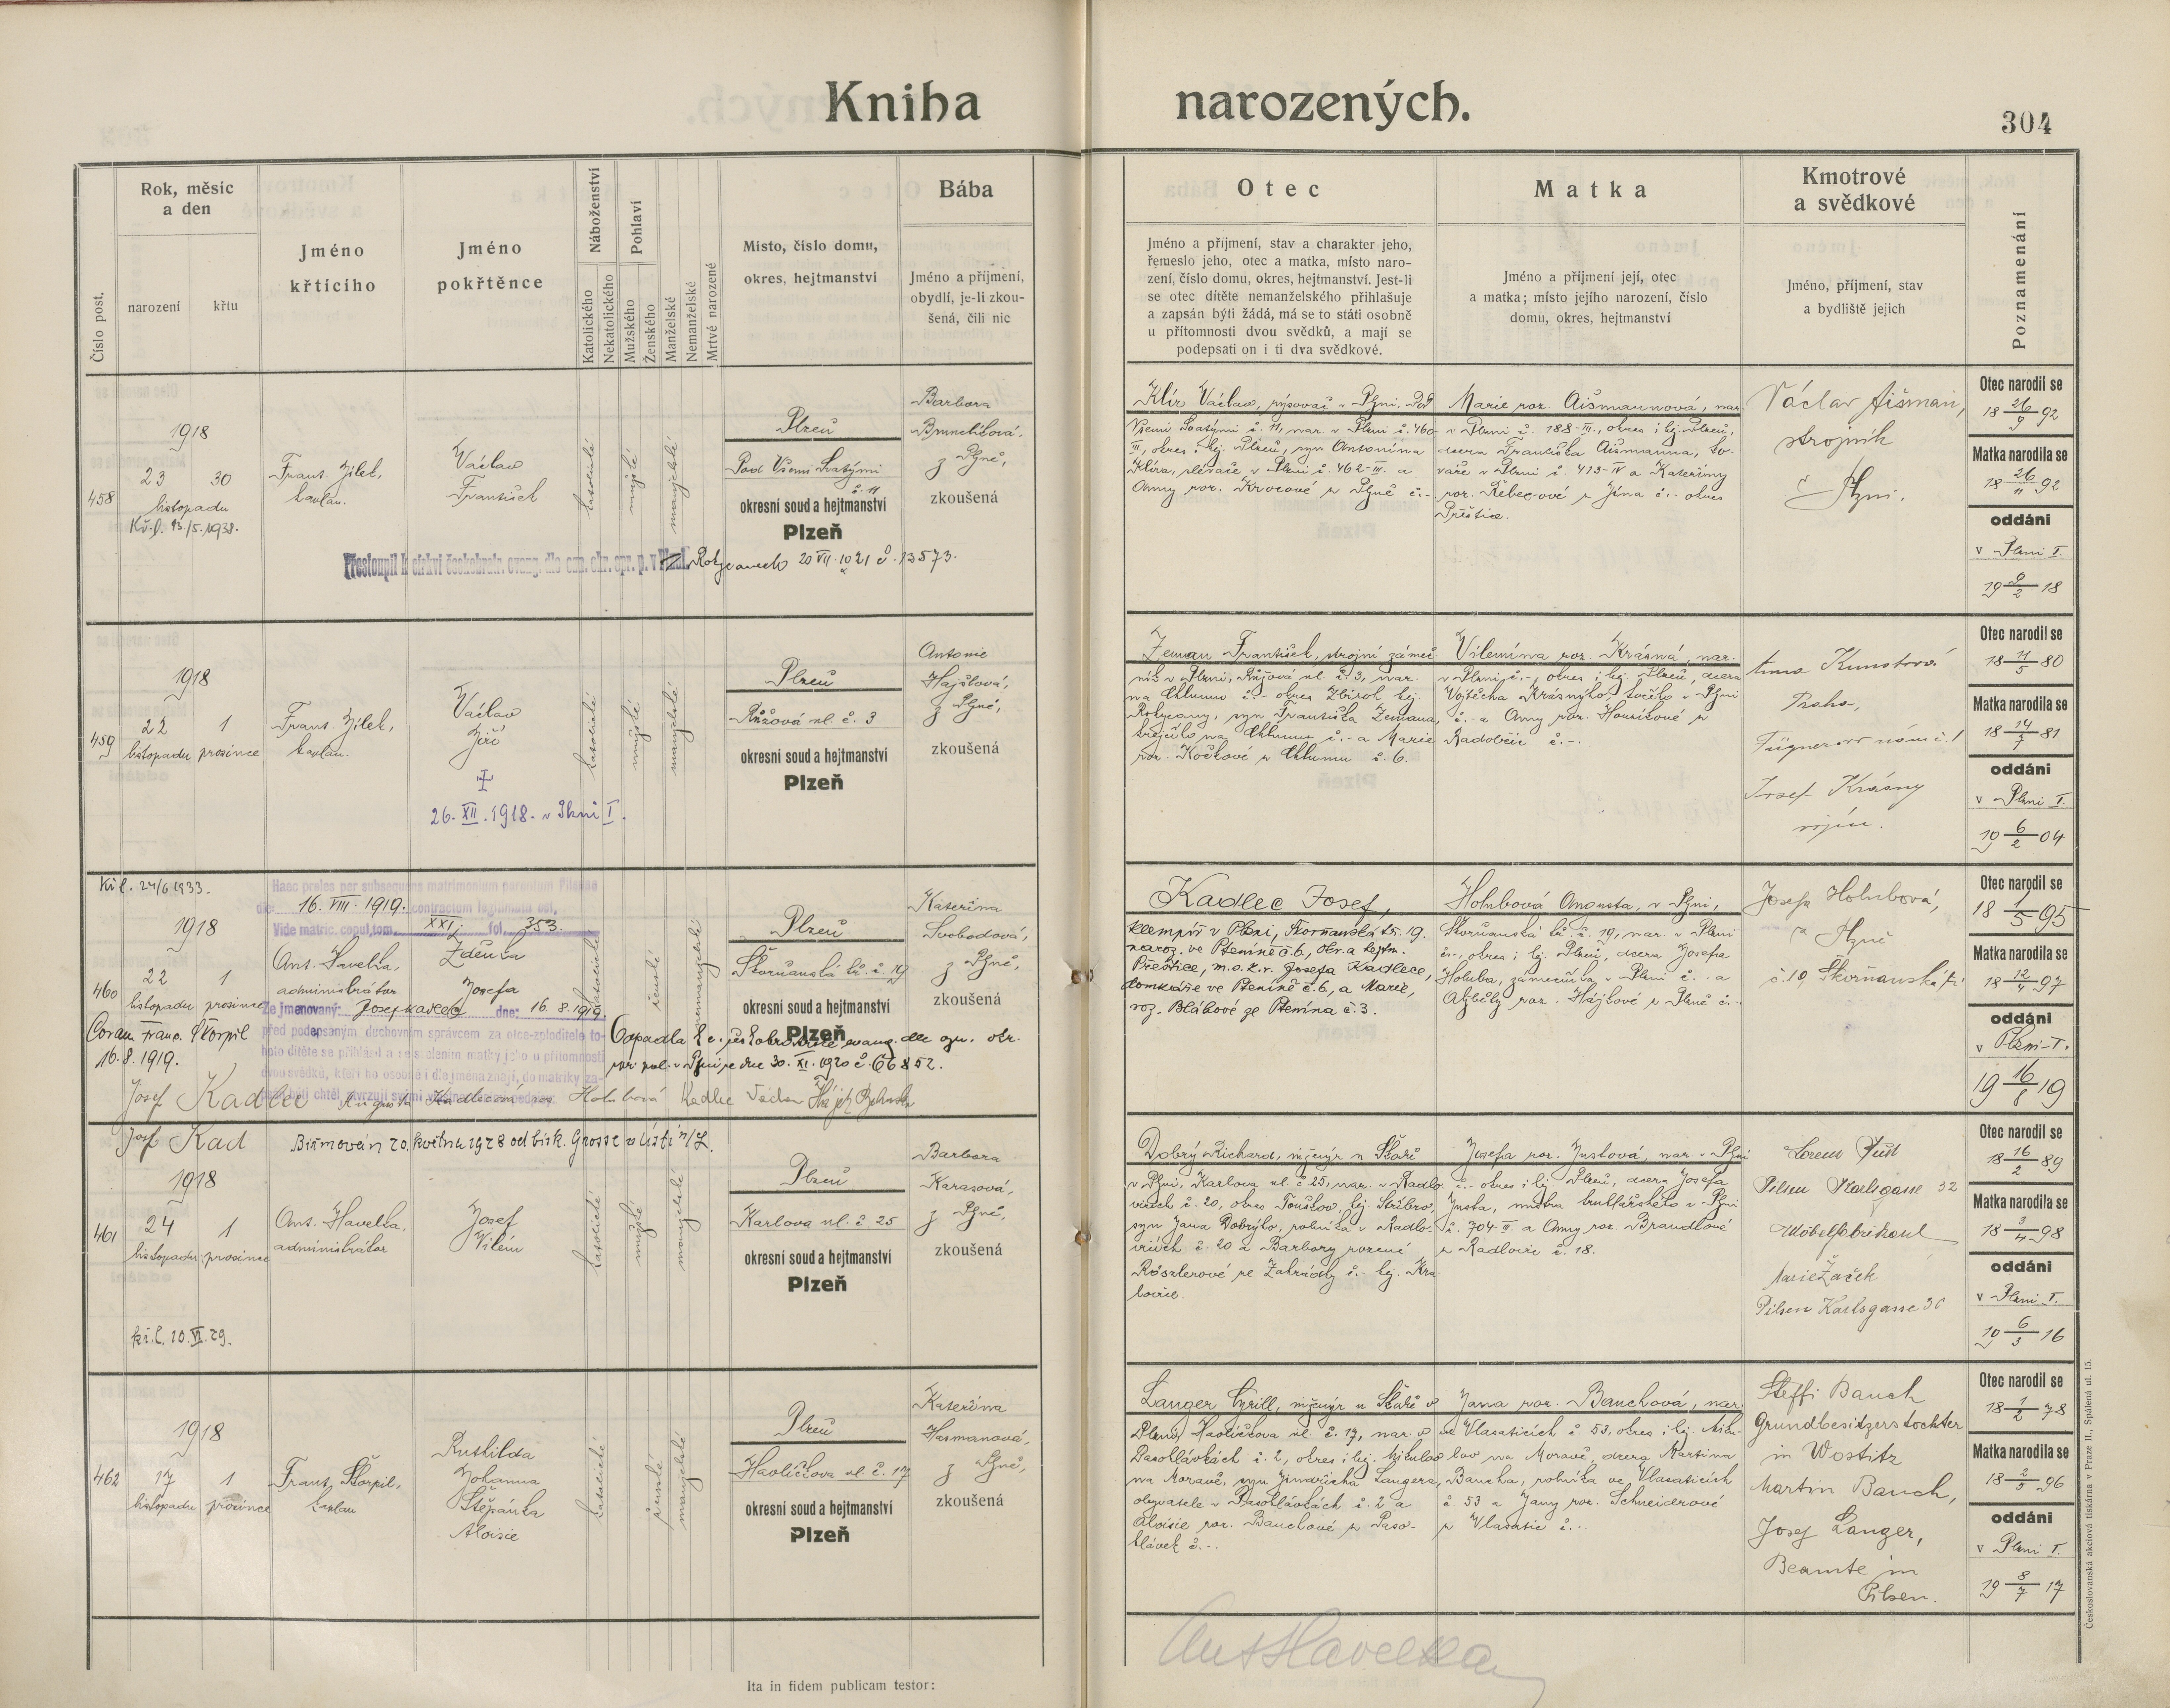 Kniha narozených.
304
Číslo post.
Rok, měsíc
a den
narození
křtu
Jméno
křtícího
Jméno
pokřtěnce
Náboženství
Katolického
Nekatolického
Pohlaví
Mužského
Ženského
Manželské
Nemanželské
Mrtvě narozené
Místo, číslo domu,
okres, hejtmanství
Bába
Jméno a příjmení,
obydlí, je-li zkou-
šená, čili nic
Otec
Jméno a příjmení, stav a charakter jeho,
řemeslo jeho, otec a matka, místo naro-
zení, číslo domu, okres, hejtmanství. Jest-li
se otec dítěte nemanželského přihlašuje
a zapsán býti žádá, má se to státi osobně
u přítomnosti dvou svědků, a mají se
podepsati on i ti dva svědkové.
Matka
Jméno a příjmení její, otec
a matka; místo jejího narození, číslo
domu, okres, hejtmanství
Kmotrové
a svědkové
Jméno, příjmení, stav
a bydliště jejich
Poznamenání
458
1918
23 30
listopadu
Kř. l. 13./5. 1938.
Frant. Jílek,
kaplan.
Václav
František
katolické
mužské
manželské
Plzeň
Pod Všemi Svatými
č. 11
okresní soud a hejtmanství
Plzeň
Barbora
z Plzně,
zkoušená
Přestoupil k církvi českobratr. evang. dle ozn. okr. spr. p. v Plzni
Rokycanech 20 VII. 1921 č. 13573.
Klír Václav, rýsovač v Plzni, Pod
Všemi Svatými č. 11, nar. v Plzni č. 460-
III, okres i hej. Plzeň, syn Antonína
Klíra, slévače v Plzni č. 462-III. a
Anny roz. Krocové z Plzně č.-
Marie roz. Aišmannová, nar.
v Plzni č. 188-III., okres i hej. Plzeň,
dcera Františka Aišmanna, ko-
váře v Plzni č. 413-IV a Kateřiny
roz. Řebecové z Jína č.- okres
Přeštice.
Václav Aišman,
strojník
v Plzni.
Otec narodil se
18 26/9 92
Matka narodila se
18 26/11 92
oddáni
v Plzni I.
19 9/2 18
459
1918
22 1
listopadu prosince
Frant. Jílek,
kaplan.
Václav
Jiří
†
26. XII. 1918. v Plzni I.
katolické
mužské
manželské
Plzeň
Růžová ul. č. 3
okresní soud a hejtmanství
Plzeň
Antonie
Hajšlová,
z Plzně,
zkoušená
Zeman František, strojní zámeč-
ník v Plzni, Růžová ul. č. 3, nar.
na Chlumu č.- okres Zbiroh hej.
Rokycany, syn Františka Zemana,
krejčího na Chlumu č.- a Marie
roz. Kočkové z Chlumu č. 6.
Vilemína roz. Krásná, nar.
v Plzni č.-, okres i hej. Plzeň, dcera
Vojtěcha Krásného, kočího v Plzni
č.- a Anny roz. Houškové z
Radobčic č.-.
Anna Kunstová
Praha,
Fügnerovo nám. č. 1
Josef Krásný
Otec narodil se
18 11/5 80
Matka narodila se
18 14/7 81
oddáni
v Plzni I.
19 6/2 04
Kř. l. 24/6 1933.
Haec proles per subsequens matrimonium parentum Pilsnae
die: 16. VIII. 1919. contractum legitimata est,
Vide matric. copul. tom. XXI, fol. 353.
460
1918
22 1
listopadu prosince
Ant. Havelka,
administrátor
Zdeňka
Josefa
katolické
ženské
nemanželské
Plzeň
Škorňanská tř. č. 19
okresní soud a hejtmanství
Plzeň
Kateřina
Svobodová,
z Plzně,
zkoušená
Že jmenovaný: Josef Kadlec dne: 16. 8. 1919.
před podepsaným duchovním správcem za otce-zploditele to-
hoto dítěte se přihlásil a se svolením matky jeho u přítomnosti
dvou svědků, kteří ho osobně i dle jména znají, do matriky za-
psán býti chtěl stvrzují svými vlastnoručními podpisy.
Coram Franc. Škorpil
16. 8. 1919.
Odpadla k c. českobratrské evang. dle ozn. okr.
spr. pol. v Plzni ze dne 30. XI. 1920 č. 66852.
Josef Kadlec Augusta Kadlecová roz. Holubová Kadlec Václav
Kadlec Josef,
klempíř v Plzni, Škorňanská tř. 19.
naroz. ve Ptenině č. 6, okr. a hejtm.
Přeštice, m. o. z. r. Josefa Kadlece,
domkáře ve Ptenině č. 6, a Marie,
roz. Blahové ze Ptenína č. 3.
Holubová Augusta, v Plzni,
Škorňanská tř. č. 19, nar. v Plzni
č.-, okres i hej. Plzeň, dcera Josefa
Holuba, zámečníka v Plzni č.- a
Alžběty roz. Hájkové z Plzně č.-
Josefa Holubová,
v Plzni
č. 19 Škorňanská tř.
Otec narodil se
18 1/5 95
Matka narodila se
18 12/4 97
oddáni
v Plzni-I.
19 16/8 19
Josef Kad
Biřmován 20. května 1928 od bisk. Grosse v Ústí n/L.
461
1918
24 1
listopadu prosince
kř. l. 10. VI. 29.
Ant. Havelka,
administrátor
Josef
Vilém
katolické
mužské
manželské
Plzeň
Karlova ul. č. 25
okresní soud a hejtmanství
Plzeň
Barbora
Karasová,
z Plzně,
zkoušená
Dobrý Richard, inženýr u Škodů
v Plzni, Karlova ul. č. 25, nar. v Radlo-
vicích č. 20, okres Touškov, hej. Stříbro,
syn Jana Dobrýho, rolníka v Radlo-
vicích č. 20 a Barbory rozené
Röszlerové ze Zahrádky č.- hej. Kra-
lovice.
Josefa roz. Justová, nar. v Plzni
č.- okres i hej. Plzeň, dcera Josefa
Justa, mistra truhlářského v Plzni
č. 704-II. a Anny roz. Brandlové
z Radlovic č. 18.
Lorenz Just
Pilsen Karlsgasse 32
Möbelfabrikant
Marie Žáček
Pilsen Karlsgasse 30
Otec narodil se
18 16/2 89
Matka narodila se
18 3/4 98
oddáni
v Plzni I.
19 6/3 16
462
1918
17 1
listopadu prosince
Frant. Škorpil,
kaplan
Ruthilda
Johanna
Štěpánka
Aloisie
katolické
ženské
manželské
Plzeň
Havlíčkova ul. č. 17
okresní soud a hejtmanství
Plzeň
Kateřina
Hasmanová,
z Plzně,
zkoušená
Langer Cyrill, inženýr u Škodů v
Plzni, Havlíčkova ul. č. 17, nar. v
Pasohlávkách č. 2, okres i hej. Mikulov
na Moravě, syn Jindřicha Langera,
obyvatele v Pasohlávkách č. 2 a
Aloisie roz. Bauchové z Paso-
hlávek č.-.
Jana roz. Bauchová, nar.
ve Vlasaticích č. 53, okres i hej. Miku-
lov na Moravě, dcera Martina
Baucha, rolníka ve Vlasaticích
č. 53 a Jany roz. Schneiderové
z Vlasatic č.-.
Steffi Bauch
Grundbesitzerstochter
in Wostitz
Martin Bauch,
Josef Langer,
Beamte in
Pilsen.
Otec narodil se
18 1/2 78
Matka narodila se
18 2/5 96
oddáni
v Plzni I.
19 8/7 17
Ant Havelka
Ita in fidem publicam testor:
Československá akciová tiskárna v Praze II., Spálená ul. 15.